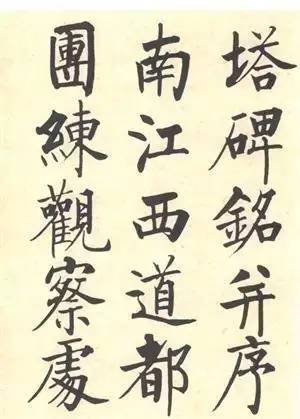 塔碑銘并序
南江西道都
團練觀察處